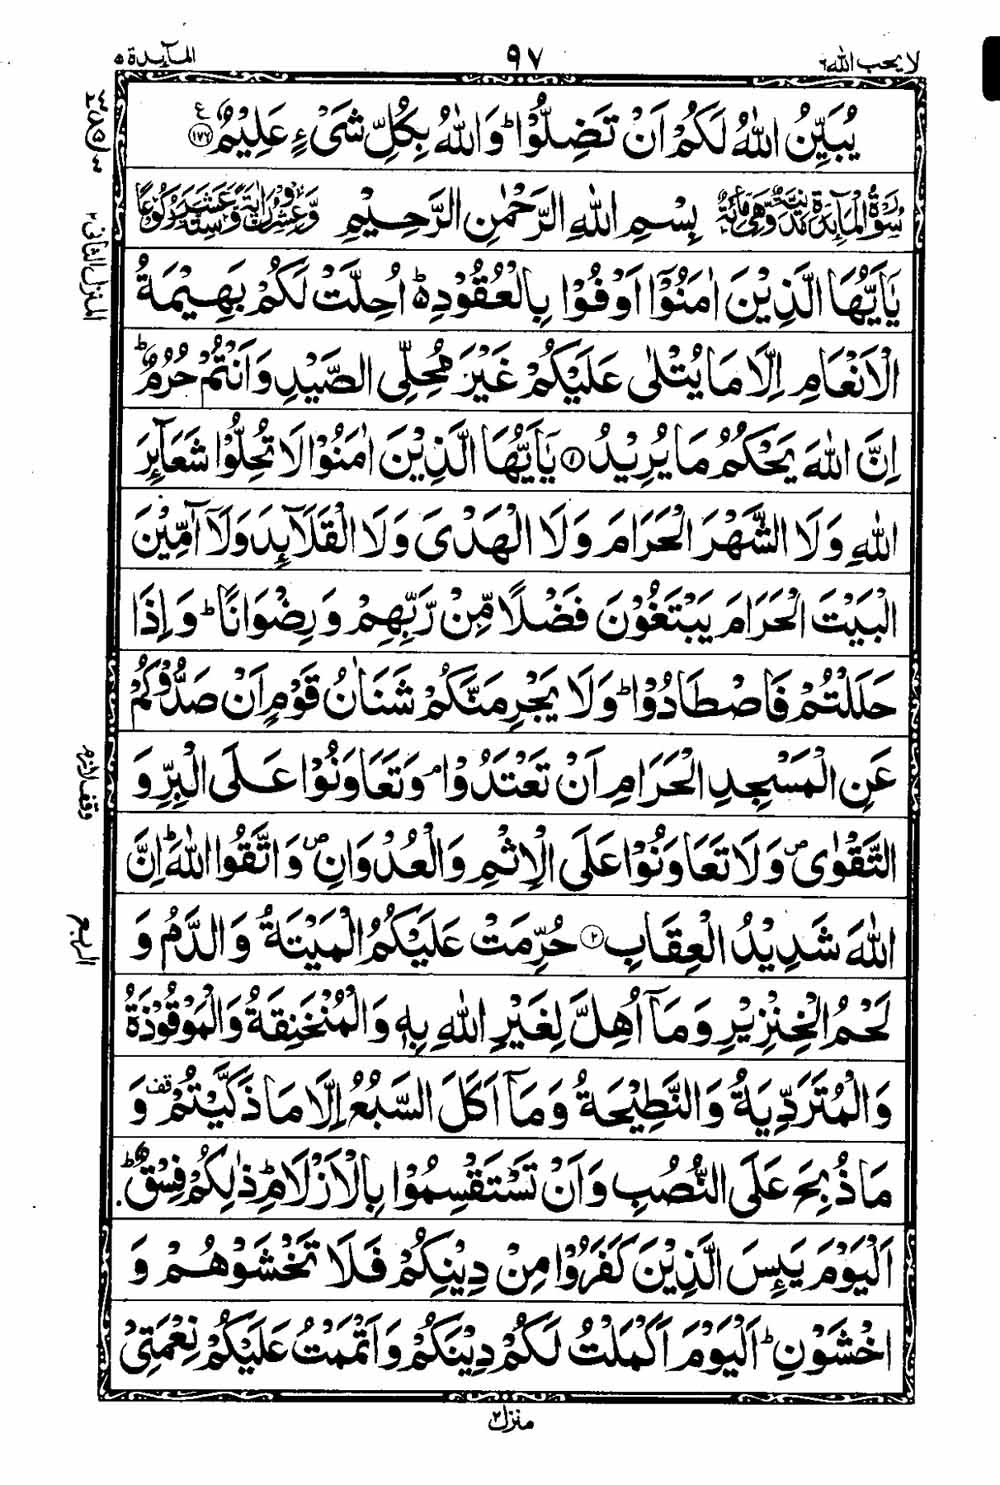 لا يحب الله ٦
٩٧
المآئدة ٥
يُبَيِّنُ اللّٰهُ لَكُمْ اَنْ تَضِلُّوْا ؕ وَاللّٰهُ بِكُلِّ شَیْءٍ عَلِيْمٌ ع ﴿۱۷۶﴾
سُوْرَةُ الْمَآئِدَةِ مَدَنِيَّةٌ وَّهِیَ مِائَةٌ بِسْمِ اللّٰهِ الرَّحْمٰنِ الرَّحِيْمِ وَّعِشْرُوْنَ اٰيَةً وَّسِتَّةَ عَشَرَ رُكُوْعًا
يٰۤاَيُّهَا الَّذِيْنَ اٰمَنُوْۤا اَوْفُوْا بِالْعُقُوْدِ ؕ اُحِلَّتْ لَكُمْ بَهِيْمَةُ
الْاَنْعَامِ اِلَّا مَا يُتْلٰى عَلَيْكُمْ غَيْرَ مُحِلِّی الصَّيْدِ وَاَنْتُمْ حُرُمٌ ؕ
اِنَّ اللّٰهَ يَحْكُمُ مَا يُرِيْدُ ﴿۱﴾ يٰۤاَيُّهَا الَّذِيْنَ اٰمَنُوْا لَا تُحِلُّوْا شَعَآئِرَ
اللّٰهِ وَلَا الشَّهْرَ الْحَرَامَ وَلَا الْهَدْیَ وَلَا الْقَلَآئِدَ وَلَاۤ آٰمِّيْنَ
الْبَيْتَ الْحَرَامَ يَبْتَغُوْنَ فَضْلًا مِّنْ رَّبِّهِمْ وَرِضْوَانًا ؕ وَاِذَا
حَلَلْتُمْ فَاصْطَادُوْا ؕ وَلَا يَجْرِمَنَّكُمْ شَنَاٰنُ قَوْمٍ اَنْ صَدُّوْكُمْ
عَنِ الْمَسْجِدِ الْحَرَامِ اَنْ تَعْتَدُوْا ۘ وَتَعَاوَنُوْا عَلَى الْبِرِّ وَ
التَّقْوٰى ۪ وَلَا تَعَاوَنُوْا عَلَى الْاِثْمِ وَالْعُدْوَانِ ۪ وَاتَّقُوا اللّٰهَ ؕ اِنَّ
اللّٰهَ شَدِيْدُ الْعِقَابِ ﴿۲﴾ حُرِّمَتْ عَلَيْكُمُ الْمَيْتَةُ وَالدَّمُ وَ
لَحْمُ الْخِنْزِيْرِ وَمَاۤ اُهِلَّ لِغَيْرِ اللّٰهِ بِهٖ وَالْمُنْخَنِقَةُ وَالْمَوْقُوْذَةُ
وَالْمُتَرَدِّيَةُ وَالنَّطِيْحَةُ وَمَاۤ اَكَلَ السَّبُعُ اِلَّا مَا ذَكَّيْتُمْ قف وَ
مَا ذُبِحَ عَلَى النُّصُبِ وَاَنْ تَسْتَقْسِمُوْا بِالْاَزْلَامِ ؕ ذٰلِكُمْ فِسْقٌ ؕ
اَلْيَوْمَ يَئِسَ الَّذِيْنَ كَفَرُوْا مِنْ دِيْنِكُمْ فَلَا تَخْشَوْهُمْ وَ
اخْشَوْنِ ؕ اَلْيَوْمَ اَكْمَلْتُ لَكُمْ دِيْنَكُمْ وَاَتْمَمْتُ عَلَيْكُمْ نِعْمَتِیْ
المنزل الثانی ۲
وقف لازم
الربع
منزل ۲